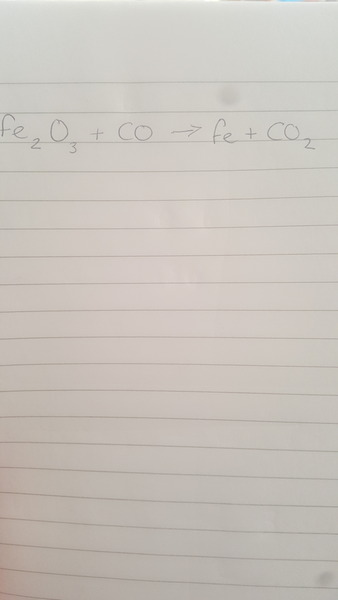 Fe₂O₃ + CO → Fe + CO₂